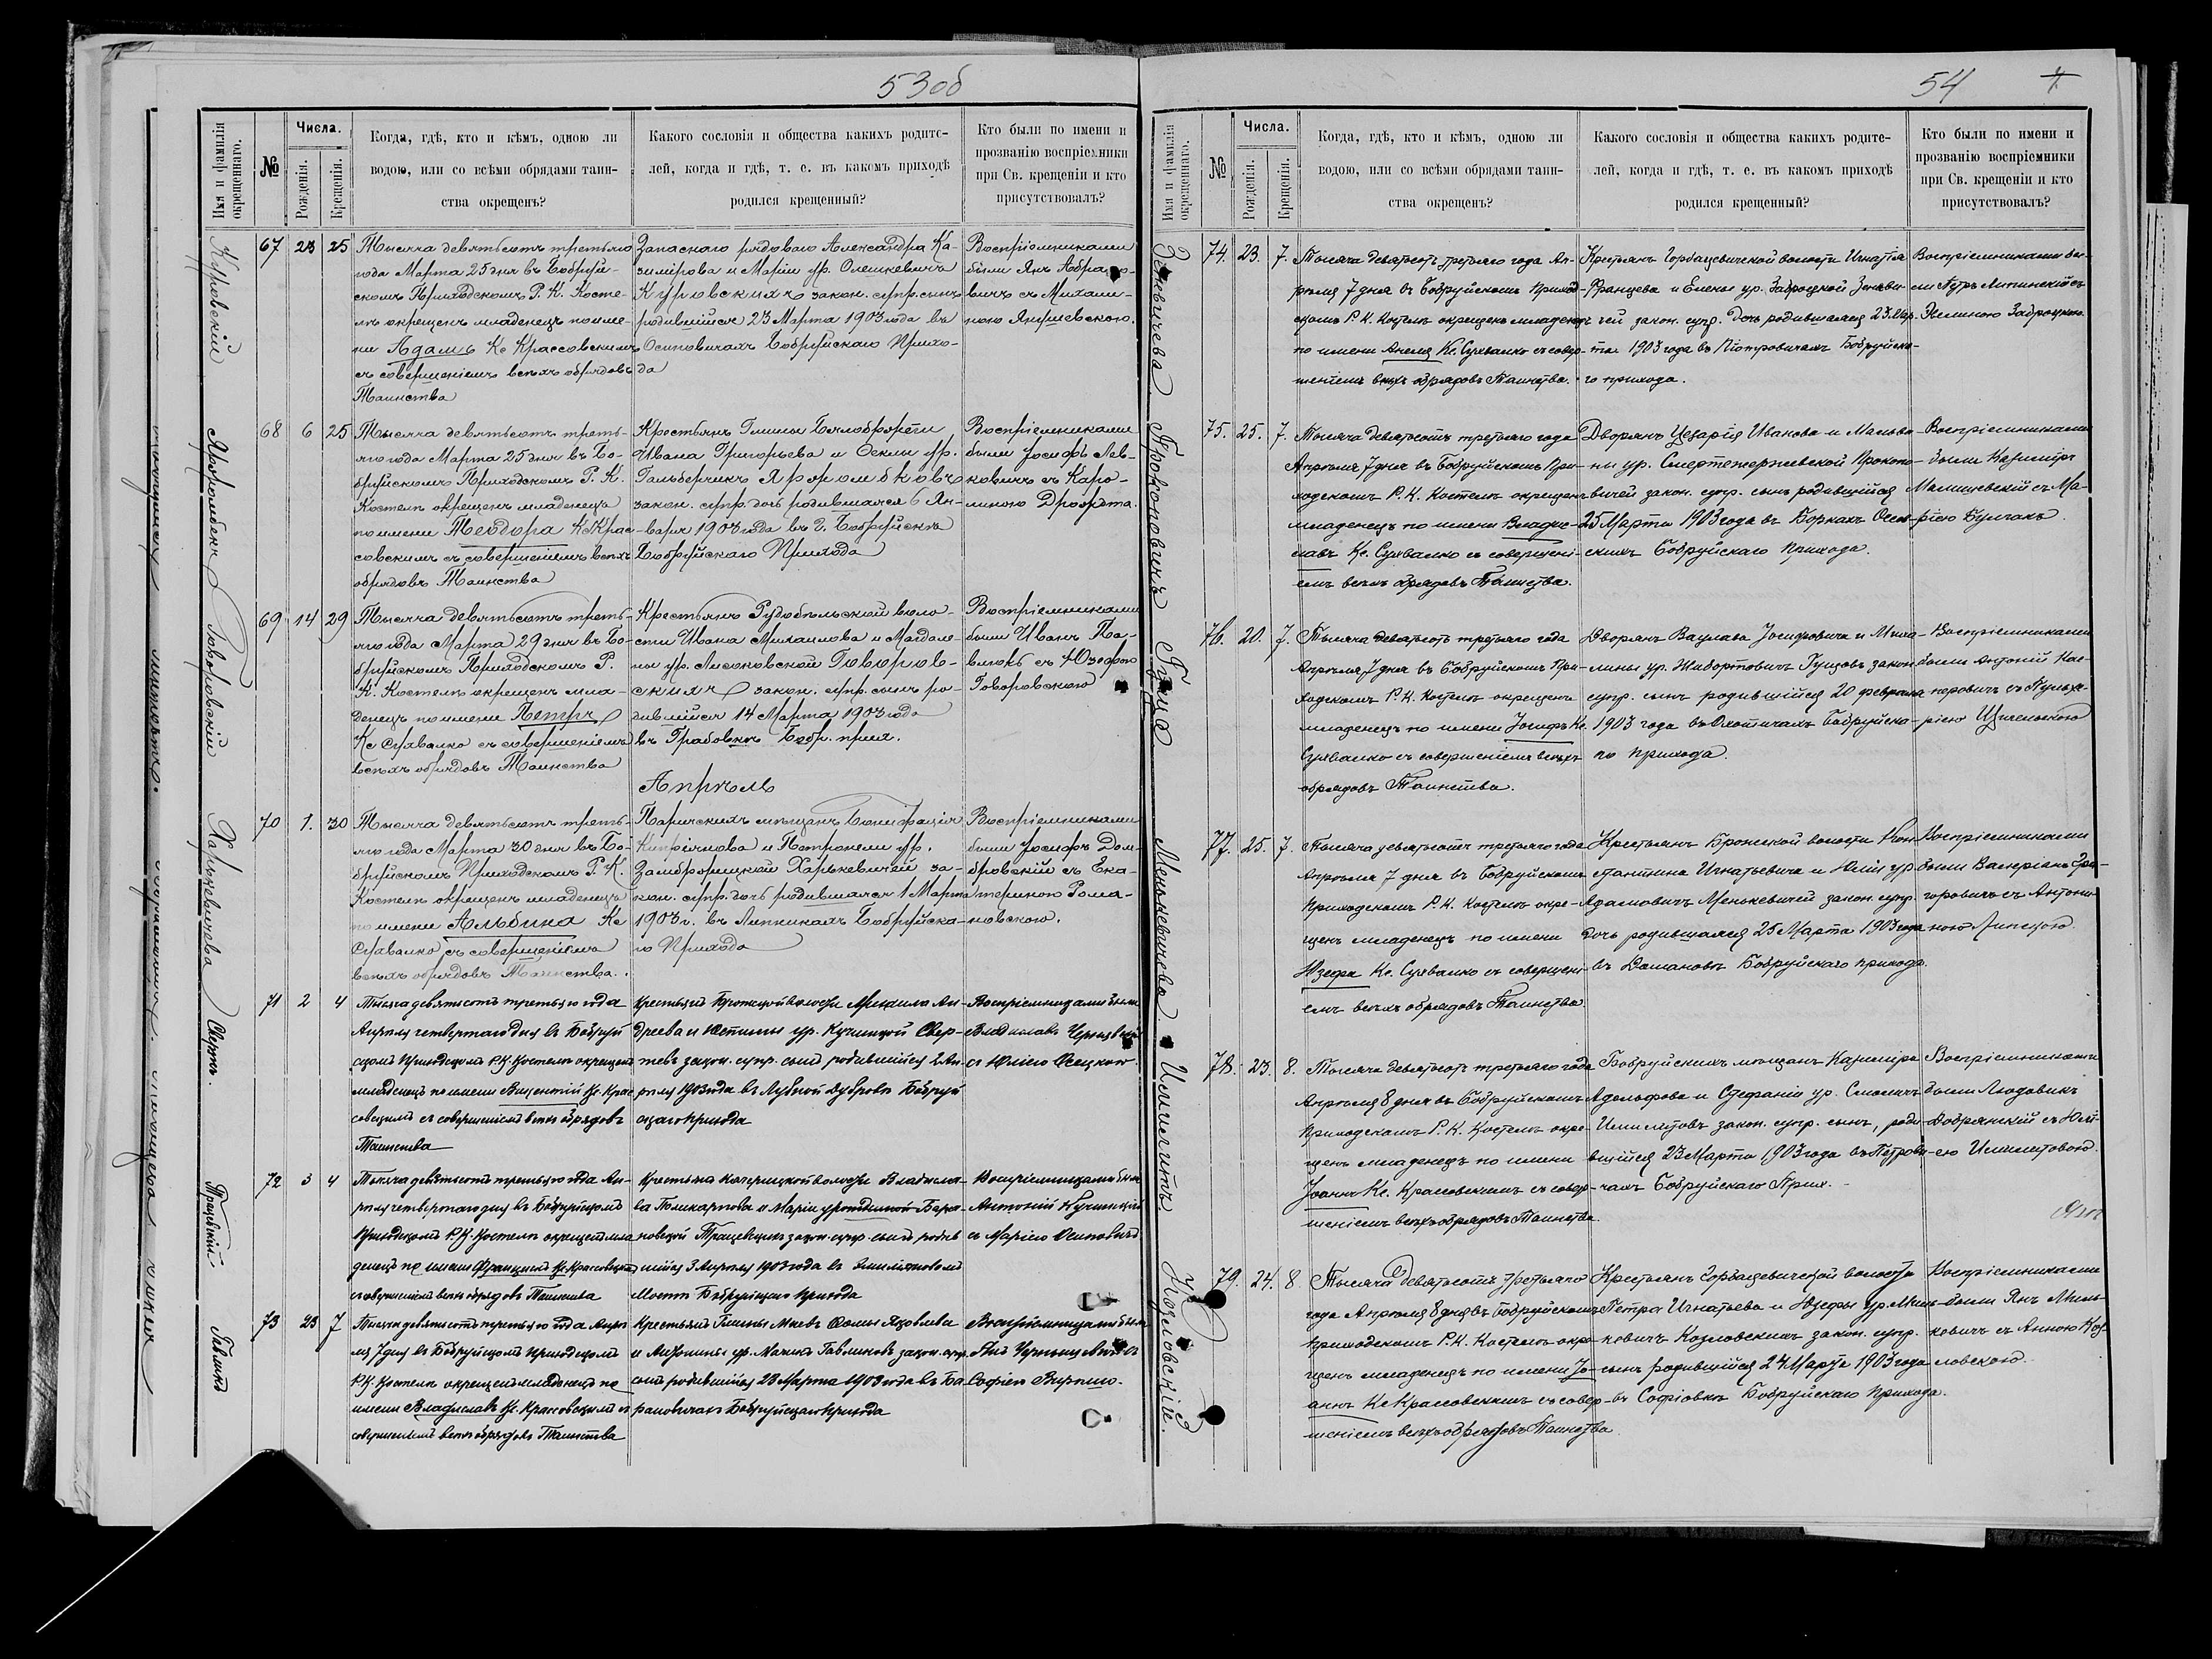 53 об
Имя и фамилія окрещеннаго.
№
Числа.
Рожденія.
Крещенія.
Когда, гдѣ, кто и кѣмъ, одною ли
водою, или со всѣми обрядами таин-
ства окрещенъ?
Какого сословія и общества какихъ родите-
лей, когда и гдѣ, т. е. въ какомъ приходѣ
родился крещенный?
Кто были по имени и
прозванію воспріемники
при Св. крещеніи и кто
присутствовалъ?
Куровскій
67 23 25
Тысяча девятьсотъ третьяго
года Марта 25 дня въ Бобруй-
скомъ Приходскомъ Р. К. Косте-
лѣ окрещенъ младенецъ по име-
ни Адамъ Кс Крассовскимъ
съ совершеніемъ всѣхъ обрядовъ
Таинства
Запаснаго рядового Александра Ка-
зимірова и Маріи ур. Олешкевичъ
Куровскихъ закон. супр. сынъ
родившійся 23 Марта 1903 года въ
Осиповичахъ Бобруйскаго Прихо-
да
Воспріемниками
были Янъ Абрамо-
вичъ съ Михали-
ною Янушевскою.
68 6 25
Тысяча девятьсотъ треть-
яго года Марта 25 дня въ Бо-
бруйскомъ Приходскомъ Р. К.
Костелѣ окрещенъ младенецъ
по имени Теодора Кс Крас-
совскимъ съ совершеніемъ всѣхъ
обрядовъ Таинства
Крестьянъ Гмины
Ивана Григорьева и ур.
закон. супр. дочь родившаяся 6 Ян-
варя 1903 года въ г. Бобруйскѣ
Бобруйскаго Прихода
Воспріемниками
были Іосифъ Лев-
ковичъ съ Каро-
линою
Говоровскій
69 14 29
Тысяча девятьсотъ треть-
яго года Марта 29 дня въ Бо-
бруйскомъ Приходскомъ Р.
К. Костелѣ окрещенъ мла-
денецъ по имени Петръ
Кс Сухвалко съ совершеніемъ
всѣхъ обрядовъ Таинства
Крестьянъ Рудобѣльской воло-
сти Ивана Михайлова и Магдале-
ны ур. Лисовской Говоров-
скихъ закон. супр. сынъ ро-
дившійся 14 Марта 1903 года
въ Грабовкѣ Бобр. прих.
Воспріемниками
были Иванъ Па-
влюкъ съ Юзефою
Говоровскою
Апрѣль
Харькевичева
70 1. 30
Тысяча девятьсотъ треть-
яго года Марта 30 дня въ Бо-
бруйскомъ Приходскомъ Р. К.
Костелѣ окрещенъ младенецъ
по имени Альбина Кс
Сухвалко съ совершеніемъ
всѣхъ обрядовъ Таинства.
Паричскихъ мѣщанъ Бонифація
Кипріянова и Петронели ур.
Замбржицкой Харькевичей за-
кон. супр. дочь родившаяся 1 Марта
1903 г. въ Липникахъ Бобруйска-
го Прихода
Воспріемниками
были Іосифъ Дом-
бровскій съ Ека-
териною Рома-
новскою.
71 2 4
Тысяча девятьсотъ третьяго года
Апрѣля четвертаго дня въ Бобруй
скомъ Приходскомъ Р.К. Костелѣ окрещенъ
младенецъ по имени Викентій Кс. Крас
совскимъ съ совершеніемъ всѣхъ обрядовъ
Таинства
Крестьянъ Бротской волости Михаила Ан-
дреева и Юстины ур. Кучинской Свер-
тевъ закон. супр. сынъ родившійся 2 Ап-
рѣля 1903 года въ Дубровѣ Бобруй
скаго прихода
Воспріемниками были
Владиславъ
съ Юліею
72 3 4
Тысяча девятьсотъ третьяго года Ап-
рѣля четвертаго дня въ Бобруйскомъ
Приходскомъ Р.К. Костелѣ окрещенъ мла
денецъ по имени Францискъ Кс. Крассовскимъ
съ совершеніемъ всѣхъ обрядовъ Таинства
Крестьянъ волости Владисла-
ва Поликарпова и Маріи урожденной Бара-
новской закон. супр. сынъ родив
шійся 3 Апрѣля 1903 года въ
Мостѣ Бобруйскаго прихода
Воспріемниками были
Антоній Кучинскій
съ Маріею Осиповичъ
73 23 7
Тысяча девятьсотъ третьяго года Апрѣ
ля 7 дня въ Бобруйскомъ Приходскомъ
Р.К. Костелѣ окрещенъ младенецъ по
имени Владиславъ Кс. Крассовскимъ съ
совершеніемъ всѣхъ обрядовъ Таинства
Крестьянъ Гмины Мневъ Фомы Яковлева
и Антонины ур. закон. супр.
сынъ родившійся 23 Марта 1903 года въ Ба-
рановичахъ Бобруйскаго прихода
Воспріемниками были
Софіею
54
Имя и фамилія окрещеннаго.
№
Числа.
Рожденія.
Крещенія.
Когда, гдѣ, кто и кѣмъ, одною ли
водою, или со всѣми обрядами таин-
ства окрещенъ?
Какого сословія и общества какихъ родите-
лей, когда и гдѣ, т. е. въ какомъ приходѣ
родился крещенный?
Кто были по имени и
прозванію воспріемники
при Св. крещеніи и кто
присутствовалъ?
Зеньвичева
74. 23. 7.
Тысяча девятьсотъ третьяго года Ап-
рѣля 7 дня въ Бобруйскомъ Приход-
скомъ Р. К. Костелѣ окрещенъ младенецъ
по имени Анеля Кс. Сухвалко съ совер-
шеніемъ всѣхъ обрядовъ Таинства.
Крестьянъ Горбацевичской волости Игнатія
Францева и Елены ур. Забродской Зеньви-
чей закон. супр. дочь родившаяся 23 Мар-
та 1903 года въ Піотровичахъ Бобруйска-
го прихода.
Воспріемниками бы-
ли Петръ Липинскій съ
Эмилиею Забродскою.
Прокоповичъ
75. 25. 7.
Тысяча девятьсотъ третьяго года
Апрѣля 7 дня въ Бобруйскомъ При-
ходскомъ Р. К. Костелѣ окрещенъ
младенецъ по имени Владис-
лавъ Кс. Сухвалко съ совершені-
емъ всѣхъ обрядовъ Таинства.
Дворянъ Цезарія Иванова и Мальви-
ны ур. Прокопо-
вичей закон. супр. сынъ родившійся
25 Марта 1903 года въ Боркахъ
скихъ Бобруйскаго прихода.
Воспріемниками
были Казиміръ
Малишевскій съ Ма-
ріею Булгакъ.
Гуща
76. 20. 7.
Тысяча девятьсотъ третьяго года
Апрѣля 7 дня въ Бобруйскомъ При-
ходскомъ Р. К. Костелѣ окрещенъ
младенецъ по имени Іосифъ Кс.
Сухвалко съ совершеніемъ всѣхъ
обрядовъ Таинства.
Дворянъ Вацлава Іосифовича и Миха-
лины ур. Жибортовичъ Гущовъ закон
супр. сынъ родившійся 20 февраля
1903 года въ Охотичахъ Бобруйска-
го прихода.
Воспріемниками
были Антоній Кас-
перовичъ съ Пульхе-
ріею
Менькевичева
77. 25. 7.
Тысяча девятьсотъ третьяго года
Апрѣля 7 дня въ Бобруйскомъ
Приходскомъ Р. К. Костелѣ окре-
щенъ младенецъ по имени
Юзефа Кс. Сухвалко съ совершені-
емъ всѣхъ обрядовъ Таинства.
Крестьянъ Брожской волости Кон-
стантина Игнатьевича и Юліи ур
Адамовичъ Менькевичей закон. супр.
дочь родившаяся 25 Марта 1903 года
въ Домановѣ Бобруйскаго прихода.
Воспріемниками
были Валеріанъ Гри-
горовичъ съ Антони-
ною Липскою.
78. 23. 8.
Тысяча девятьсотъ третьяго года
Апрѣля 8 дня въ Бобруйскомъ
Приходскомъ Р. К. Костелѣ окре-
щенъ младенецъ по имени
Іоаннъ Кс. Красовскимъ съ совер-
шеніемъ всѣхъ обрядовъ Таинства.
Бобруйскихъ мѣщанъ Казиміра
Адольфова и Стефаніи ур.
закон. супр. сынъ, роди-
вшійся 23 Марта 1903 года въ Петрови-
чахъ Бобруйскаго Прих.
Воспріемниками
были Людовикъ
Добрянскій съ Юлі-
ею
Козловскій.
79. 24. 8
Тысяча девятьсотъ третьяго
года Апрѣля 8 дня въ Бобруйскомъ
Приходскомъ Р. К. Костелѣ окре-
щенъ младенецъ по имени Іо-
аннъ Кс Красовскимъ съ совер-
шеніемъ всѣхъ обрядовъ Таинства.
Крестьянъ Горбацевичской волости
Петра Игнатьева и Юзефы ур. Миць-
кевичъ Козловскихъ закон. супр.
сынъ родившійся 24 Марта 1903 года
въ Софіовкѣ Бобруйскаго прихода.
Воспріемниками
были Янъ Миць-
кевичъ съ Анною Коз-
ловскою.